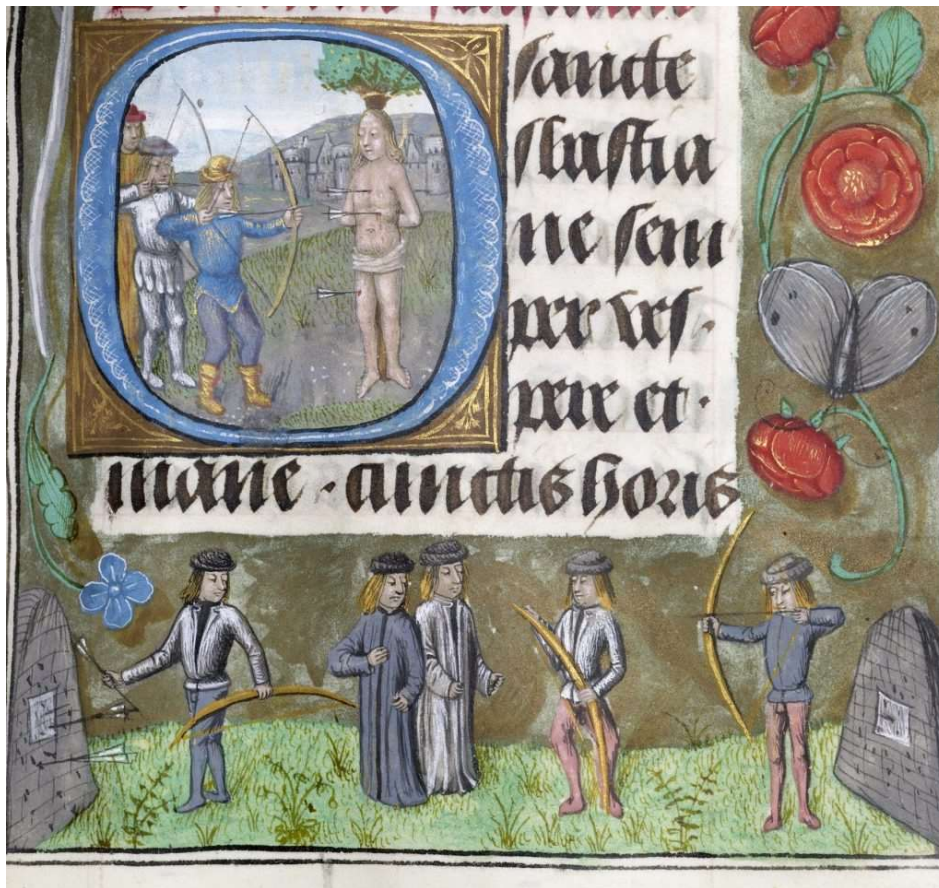 O sancte
sebastia
ne sem
per ves·
pere et·
mane · cunctis horis